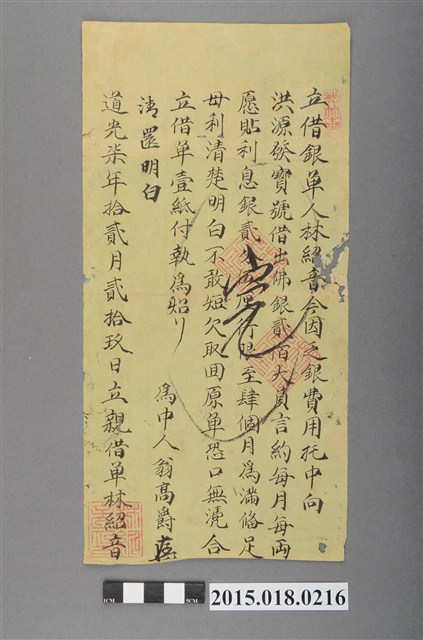 立借銀單人林紹音今因乏銀費用托中向
洪源發寶號借出佛銀貳佰大員言約每月每兩
愿貼利息銀貳 行限至肆個月為滿俻足
母利清楚明白不敢短欠取回原單恐口無凴合
立借单壹紙付執為炤
清還明白
為中人翁高爵
道光柒年拾貳月貳拾玖日立親借单林紹音
5CM
1CM
2015.018.0216